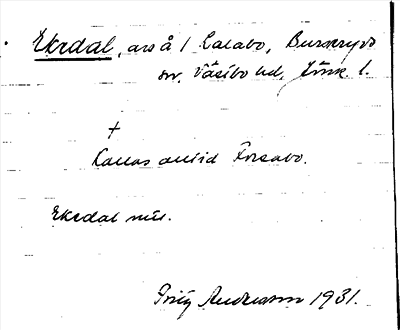 Ekedal, avs å / Calabo, Burseryds
sn, Västbo hd, Jönk. l.
+
Kallas alltid Forsabo.
Ekedal mil.
Andersson 1931.